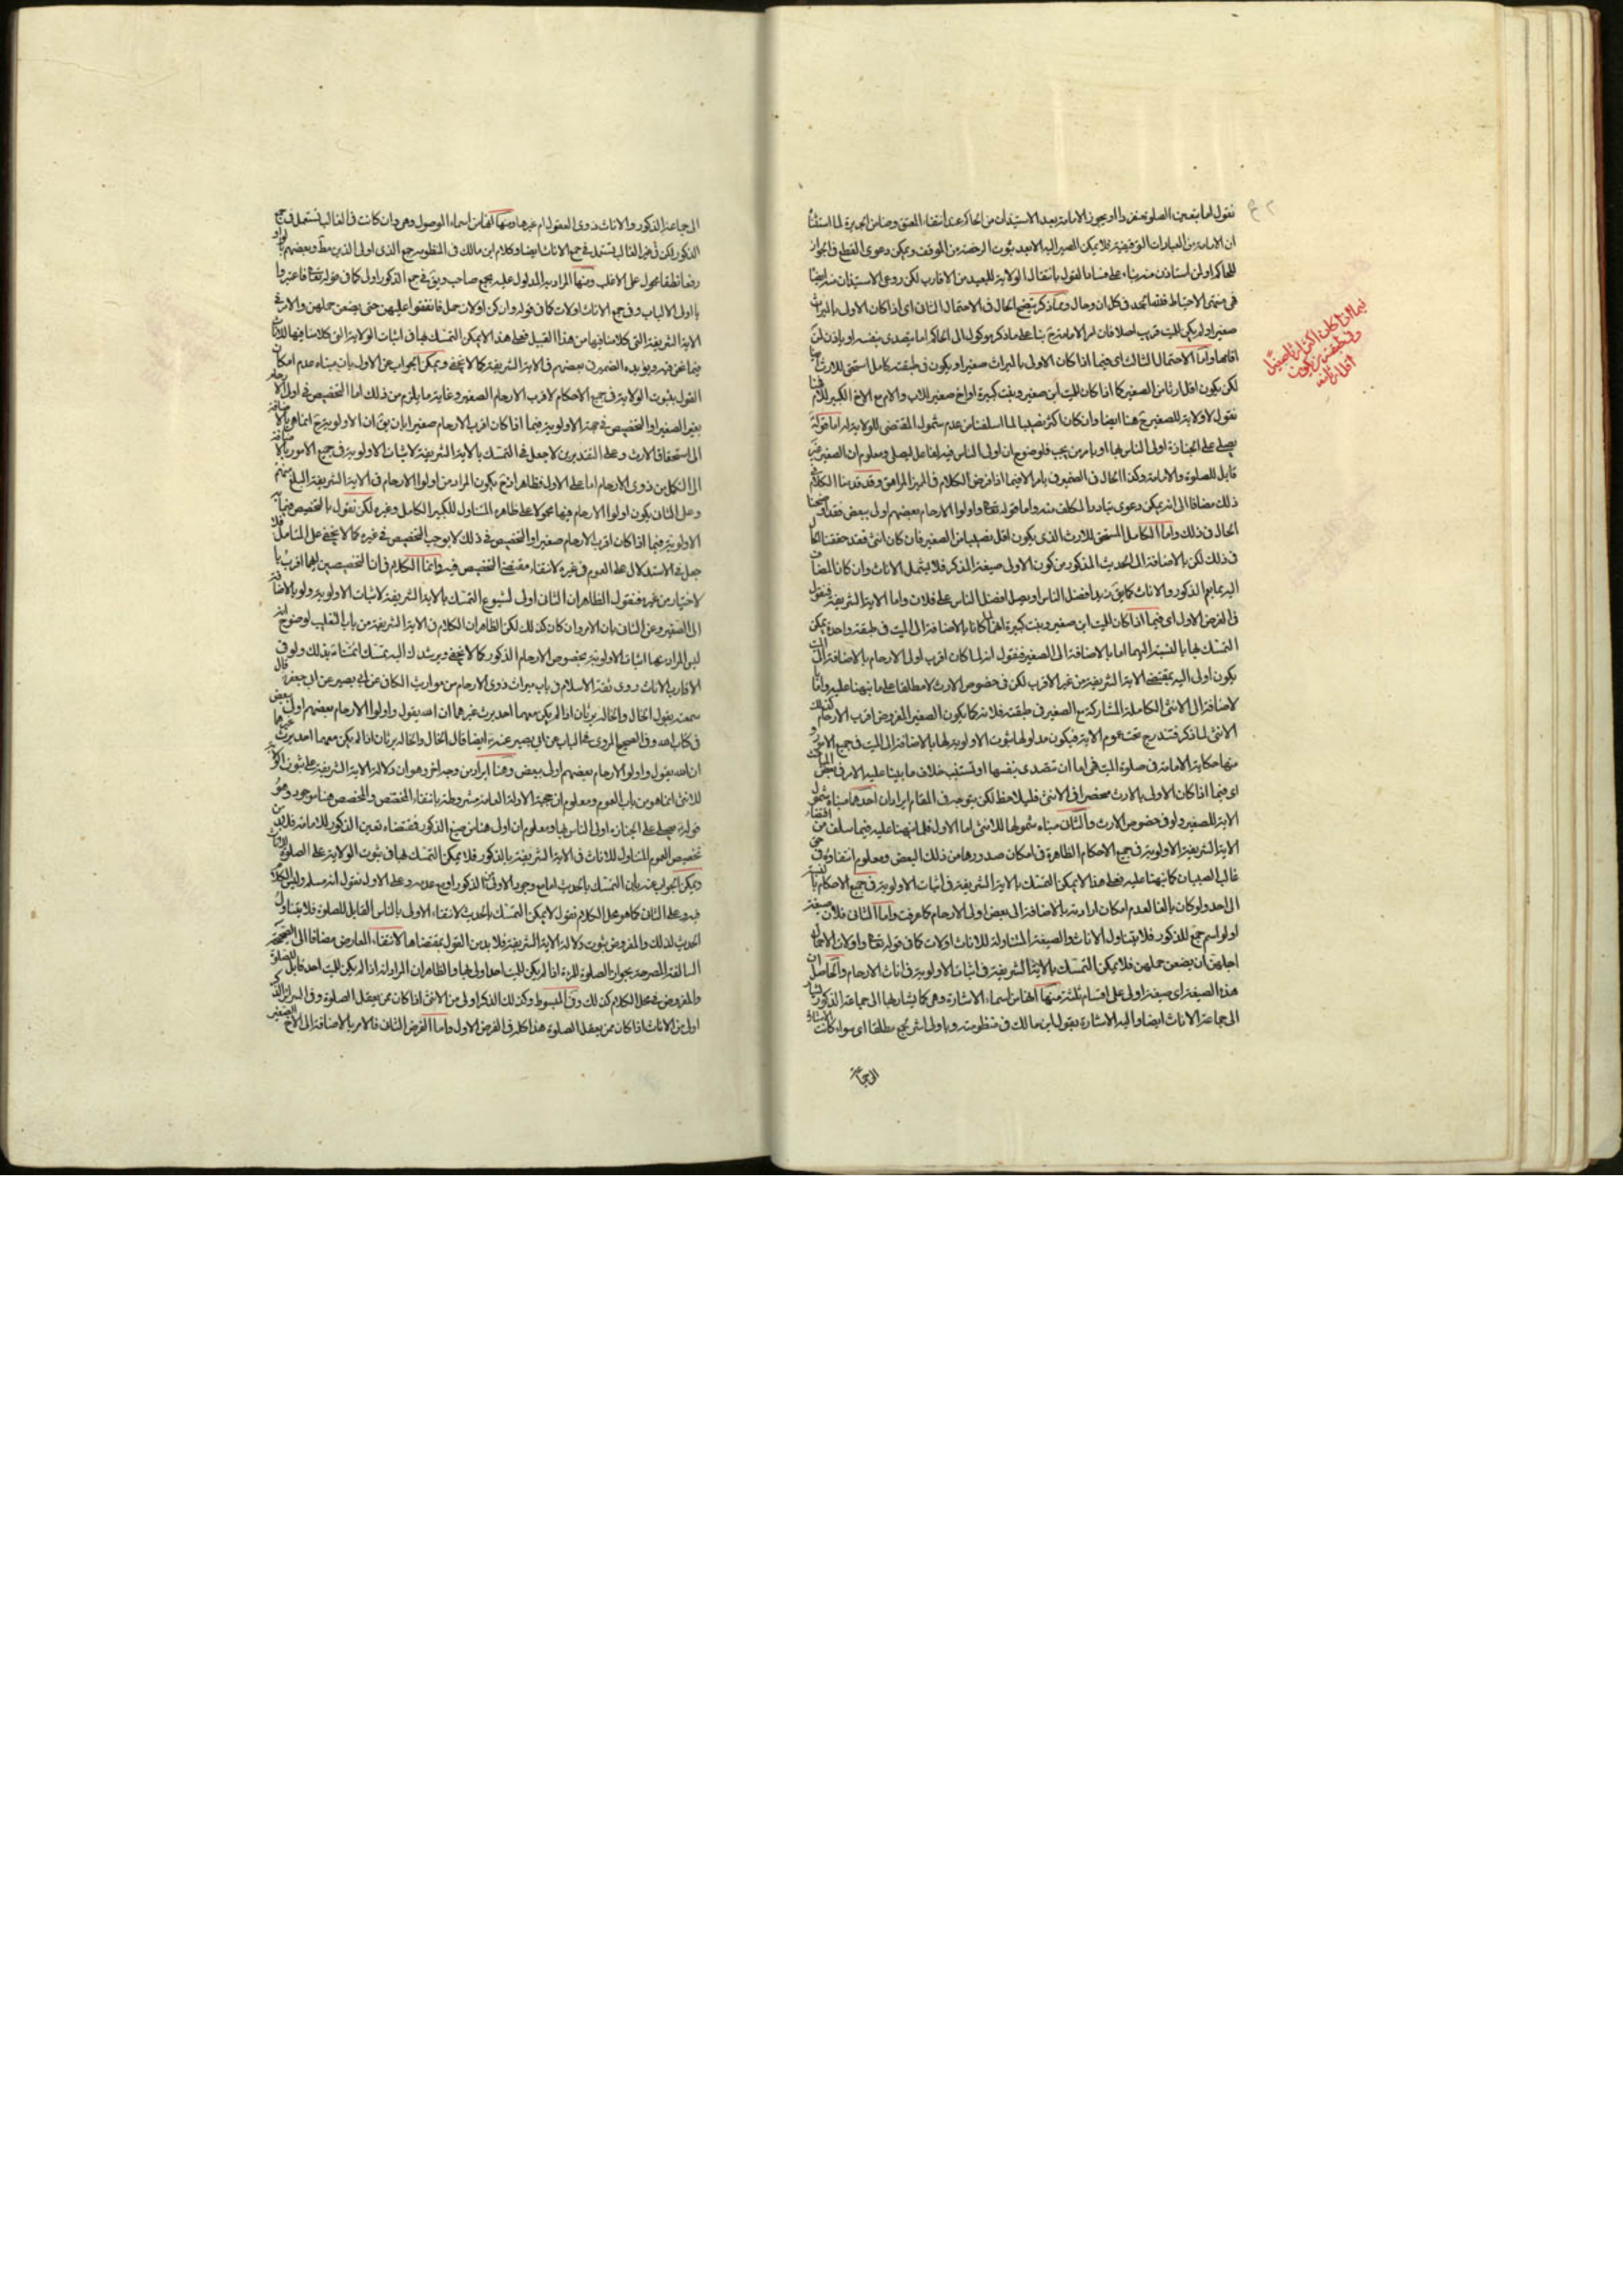 نقول اما بتعين الصلوة منفردا او بجوز الامامة بعد الاستيذان من الحاكم عند انتفاء المعتق وضامن الجريرة لما
ان الامامة من العبادات التوقيفية فلا يمكن المصير اليه الا بعد ثبوت الرخصة من الموقف ويمكن دعوى القطع في الجواز
للحاكم او لمن استاذن منه بناء على فساد القول بانتقال الولاية للبعيد من الاقارب لكن روعى الاستيذان منه ايضا
في منتهى الاحتياط ففيه الحمد في كل ان وحال ومما ذكر يتضح الحال في الاحتمال الثاني اى اذا كان الاولى بالميراث
صغيرا ولم يكن للميت قريب اصلا فان امر الامامة ح بناء على ما ذكر موكول الى الحاكم اما يتصدى بنفسه او ياذن لمن
اقامها واما الاحتمال الثالث اى فيما اذا كان الاولى بالميراث صغيرا ويكون في طبقته كامل استحق للارث
لكن يكون اقل ارثا من الصغير كما اذا كان للميت ابن صغير وبنت كبيرة او اخ صغير للاب والام مع الاخ الكبير للام
نقول لا ولاية للصغير ح هنا ايضا وان كان اكثر نصيبا لما اسلفنا من عدم شمول المقتضى للولاية له اما قوله
يصلى على الجنازة اولى الناس بها او يامر من يحب فلوضوح ان اولى الناس فيه فاعل ليصلى ومعلوم ان الصغير غير
قابل للصلوة والامامة وكذا الحال في الصغير في يامر الا فيما اذا فرض الكلام في المميز المراهق وقد قدمنا الكلام
ذلك مضافا الى انه يمكن دعوى تبادر المكلف منه واما قوله تعالى واولوا الارحام بعضهم اولى ببعض فقد اوضحنا
الحال في ذلك واما الكامل المستحق للارث الذى يكون اقل نصيبا من الصغير فان كان انثى فقد حققنا
في ذلك لكن بالاضافة الى الحديث المذكور من كون الاولى صيغة المذكر فلا يشمل الاناث وان كان المضاف
اليه مما يعم الذكور والاناث كما يق زيد افضل الناس او يصل افضل الناس على فلان واما الاية الشريفة فنقول
في الفرض الاول اى فيما اذا كان للميت ابن صغير وبنت كبيرة انهما كانا بالاضافة الى الميت في طبقة واحدة يمكن
التمسك بها بالنسبة اليهما اما بالاضافة الى الصغير فنقول انه لما كان اقرب اولى الارحام بالاضافة الى الميت
يكون اولى اليه بمقتضى الاية الشريفة من غير الاقرب لكن في خصوص الارث لا مطلقا على ما نبهنا عليه واما
لاضافة الى الانثى الكاملة المشاركة مع الصغير في طبقته فلانه كما يكون الصغير المفروض اقرب الارحام كذلك
الانثى لما ذكر فتندرج تحت عموم الاية فيكون مدلولها ثبوت الاولوية لها بالاضافة الى الميت في جميع الامور
منها حكاية الامامة في صلوة الميت فهي اما ان تتصدى بنفسها او تستنيب خلاف ما بينا عليه الامر في
اى فيما اذا كان الاولى بالارث منحصرا في الانثى فليلاحظ لكن يتوجه في المقام ايرادان احدهما مبناه شمول
الاية للصغير ولو في خصوص الارث والثاني مبناه شمولها للانثى اما الاول فلما نبهنا عليه فيما سلف من
الاية الشريفة الاولوية في جميع الاحكام الظاهرة في امكان صدورها من ذلك البعض ومعلوم انتفاؤه في
غالب الصبيان كما نبهنا عليه فعلى هذا لا يمكن التمسك بالاية الشريفة في اثبات الاولوية في جميع الاحكام
الى احد ولو كان بالغا لعدم امكان ارادته بالاضافة الى بعض اولى الارحام كما عرفت واما الثاني فلان صيغة
اولوا اسم جمع للذكور فلا يتناول الاناث والصيغة المتناولة للاناث اولات كما في قوله تعالى واولات الاحمال
اجلهن ان يضعن حملهن فلا يمكن التمسك بالاية الشريفة في اثبات الاولوية في اناث الارحام والحاصل ان
هذه الصيغة اى صيغة اولى على اقسام ثلثة منها انها من اسماء الاشارة وهى كما يشار بها الى جماعة الذكور
الى جماعة الاناث ايضا واليه الاشارة بقول ابن مالك في منظومته وباولى اشر لجمع مطلقا اى سواء كانت
الى جماعة
فيما اذا كان اكثر ارثا للصغير
اقل ارثا منه
الى جماعة الذكور والاناث ذوى العقول ام غيرها ومنها انها من اسماء الموصول وهى وان كانت في الغالب تستعمل في جمع
الذكور لكن في غير الغالب تستعمل في جمع الاناث ايضا وكلام ابن مالك في المنظومة جمع الذى اولى الذين مط وبعضهم بالواو
رفعا نطقا محمول على الاغلب ومنها المراد به المدلول عليه بجمع صاحب ويق في جمع الذكور اولى كما في قوله تعالى فاعتبروا
يا اولى الالباب وفي جمع الاناث اولات كما في قوله وان كن اولات حمل فانفقوا عليهن حتى يضعن حملهن والامر في
الاية الشريفة التى كلامنا فيها من هذا القبيل فعلى هذا لا يمكن التمسك بها في اثبات الولاية التى كلامنا فيها للاناث
فيما نحن فيه ويؤيده الضمير في بعضهم في الاية الشريفة كما لا يخفى ويمكن الجواب عن الاول بان مبناه عدم امكان
القول بثبوت الولاية في جميع الاحكام لاقرب الارحام الصغير وغاية ما يلزم من ذلك اما التخصيص في اولى الارحام
بغير الصغير او التخصيص في جهة الاولوية فيما اذا كان اقرب الارحام صغيرا بان يق ان الاولوية ح انما هى بالاضافة
الى استحقاق الارث وعلى التقديرين لا جعل في التمسك بالاية الشريفة لاثبات الاولوية في جميع الامور بالاضافة
الى الكل من ذوى الارحام اما على الاول فظاهر اذ ح يكون المراد من اولوا الارحام في الاية الشريفة البلغ منهم
وعلى الثاني يكون اولوا الارحام فيها محمولا على ظاهره المتناول للكبير الكامل وغيره لكن نقول بالتخصيص في
الاولوية فيما اذا كان اقرب الارحام صغيرا والتخصيص في ذلك لا يوجب التخصيص في غيره كما لا يخفى على المتامل فلا
جعل في الاستدلال على العموم في غيره لانتفاء مقتضى التخصيص فيه وانما الكلام في ان التخصيصين ايهما اقرب
لاختيار من غيره فنقول الظاهر ان الثاني اولى لشيوع التمسك بالاية الشريفة لاثبات الاولوية ولو بالاضافة
الى الصغير وعن الثاني بان الامر وان كان كذلك لكن الظاهر ان الكلام في الاية الشريفة من باب التغليب لوضوح انه
ليس المراد بها اثبات الاولوية بخصوص الارحام الذكور كما لا يخفى ويرشدك اليه تمسك ائمتنا بذلك ولو في
الاقارب الاناث روى ثقة الاسلام في باب ميراث ذوى الارحام من مواريث الكافى عن ابى بصير عن ابى جعفر قال
سمعته يقول الخال والخالة يرثان اذا لم يكن معهما احد يرث غيرهما ان الله يقول واولوا الارحام بعضهم اولى ببعض
في كتاب الله وفي الصحيح المروى في الباب عن ابى بصير عنه ايضا قال الخال والخالة يرثان اذا لم يكن معهما احد يرث غيرهما
ان الله يقول واولوا الارحام بعضهم اولى ببعض وهنا ايراد من وجه اخر وهو ان دلالة الاية الشريفة على ثبوت
للانثى انما هو من باب العموم ومعلوم ان حجية الادلة العامة مشروطة بانتفاء المخصص والمخصص هنا موجود وهو
قوله يصلى على الجنازة اولى الناس بها ومعلوم ان اولى هنا من صيغ الذكور فمقتضاه تعين الذكور للامامة فلابد من
تخصيص العموم المتناول للاناث في الاية الشريفة بالذكور فلا يمكن التمسك بها في ثبوت الولاية على الصلوة للاناث
ويمكن الجواب عنه بان التمسك بالحديث اما مع وجود الاولى من الذكور او مع عدمه وعلى الاول نقول انه مسلم وليس الكلام
فيه وعلى الثاني كما هو محل الكلام نقول لا يمكن التمسك بالحديث لانتفاء الاولى بالناس القابل للصلوة فلا يتناول
الحديث لذلك والمفروض ثبوت دلالة الاية الشريفة فلابد من القول بمقتضاها لانتفاء المعارض مضافا الى الصحيحة
السالفة المصرحة بجواز الصلوة للمرئة اذا لم يكن للميت احد اولى بها والظاهر ان المراد انه اذا لم يكن للميت احد قابل للصلوة
والمفروض في محل الكلام كذلك وفي المبسوط وكذلك الذكر اولى من الانثى اذا كان ممن يعقل الصلوة وفي السرائر الذكر
اولى من الاناث اذا كان ممن يعقل الصلوة هذا كله في الفرض الاول واما الفرض الثاني فالامر بالاضافة الى الاخ الصغير